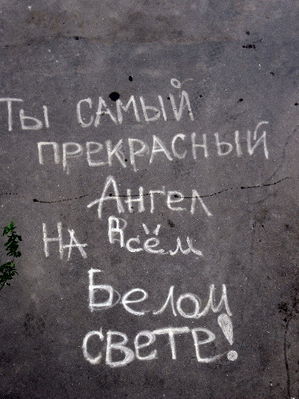 Ты самый
прекрасный
Ангел
На Всём
Белом
свете!